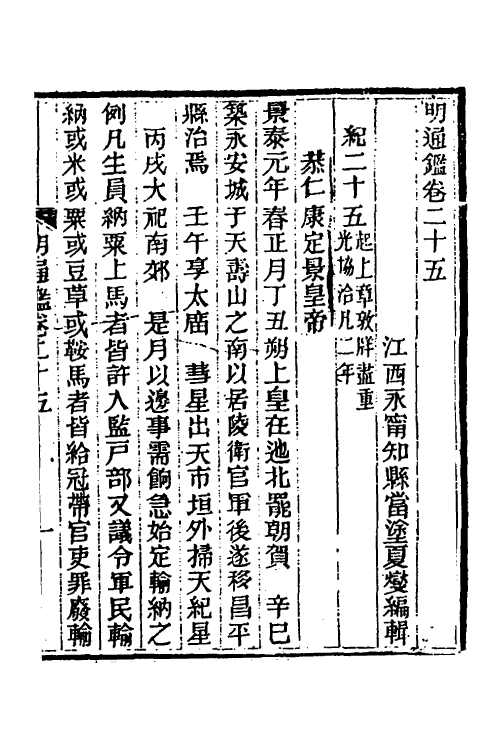 明通鑑卷二十五
江西永甯知縣當塗夏燮編輯
紀二十五起上章敦牂盡重
光協洽凡二年
恭仁康定景皇帝
景泰元年春正月丁丑朔上皇在迤北罷朝賀　辛巳
築永安城于天壽山之南以居陵衛官軍後遂移昌平
縣治焉　壬午享太廟　彗星出天市垣外掃天紀星
丙戌大祀南郊　是月以邊事需餉急始定輸納之
例凡生員納粟上馬者皆許入監戶部又議令軍民輸
納或米或粟或豆草或鞍馬者皆給冠帶官吏罪廢輸
明通鑑卷二十五　一